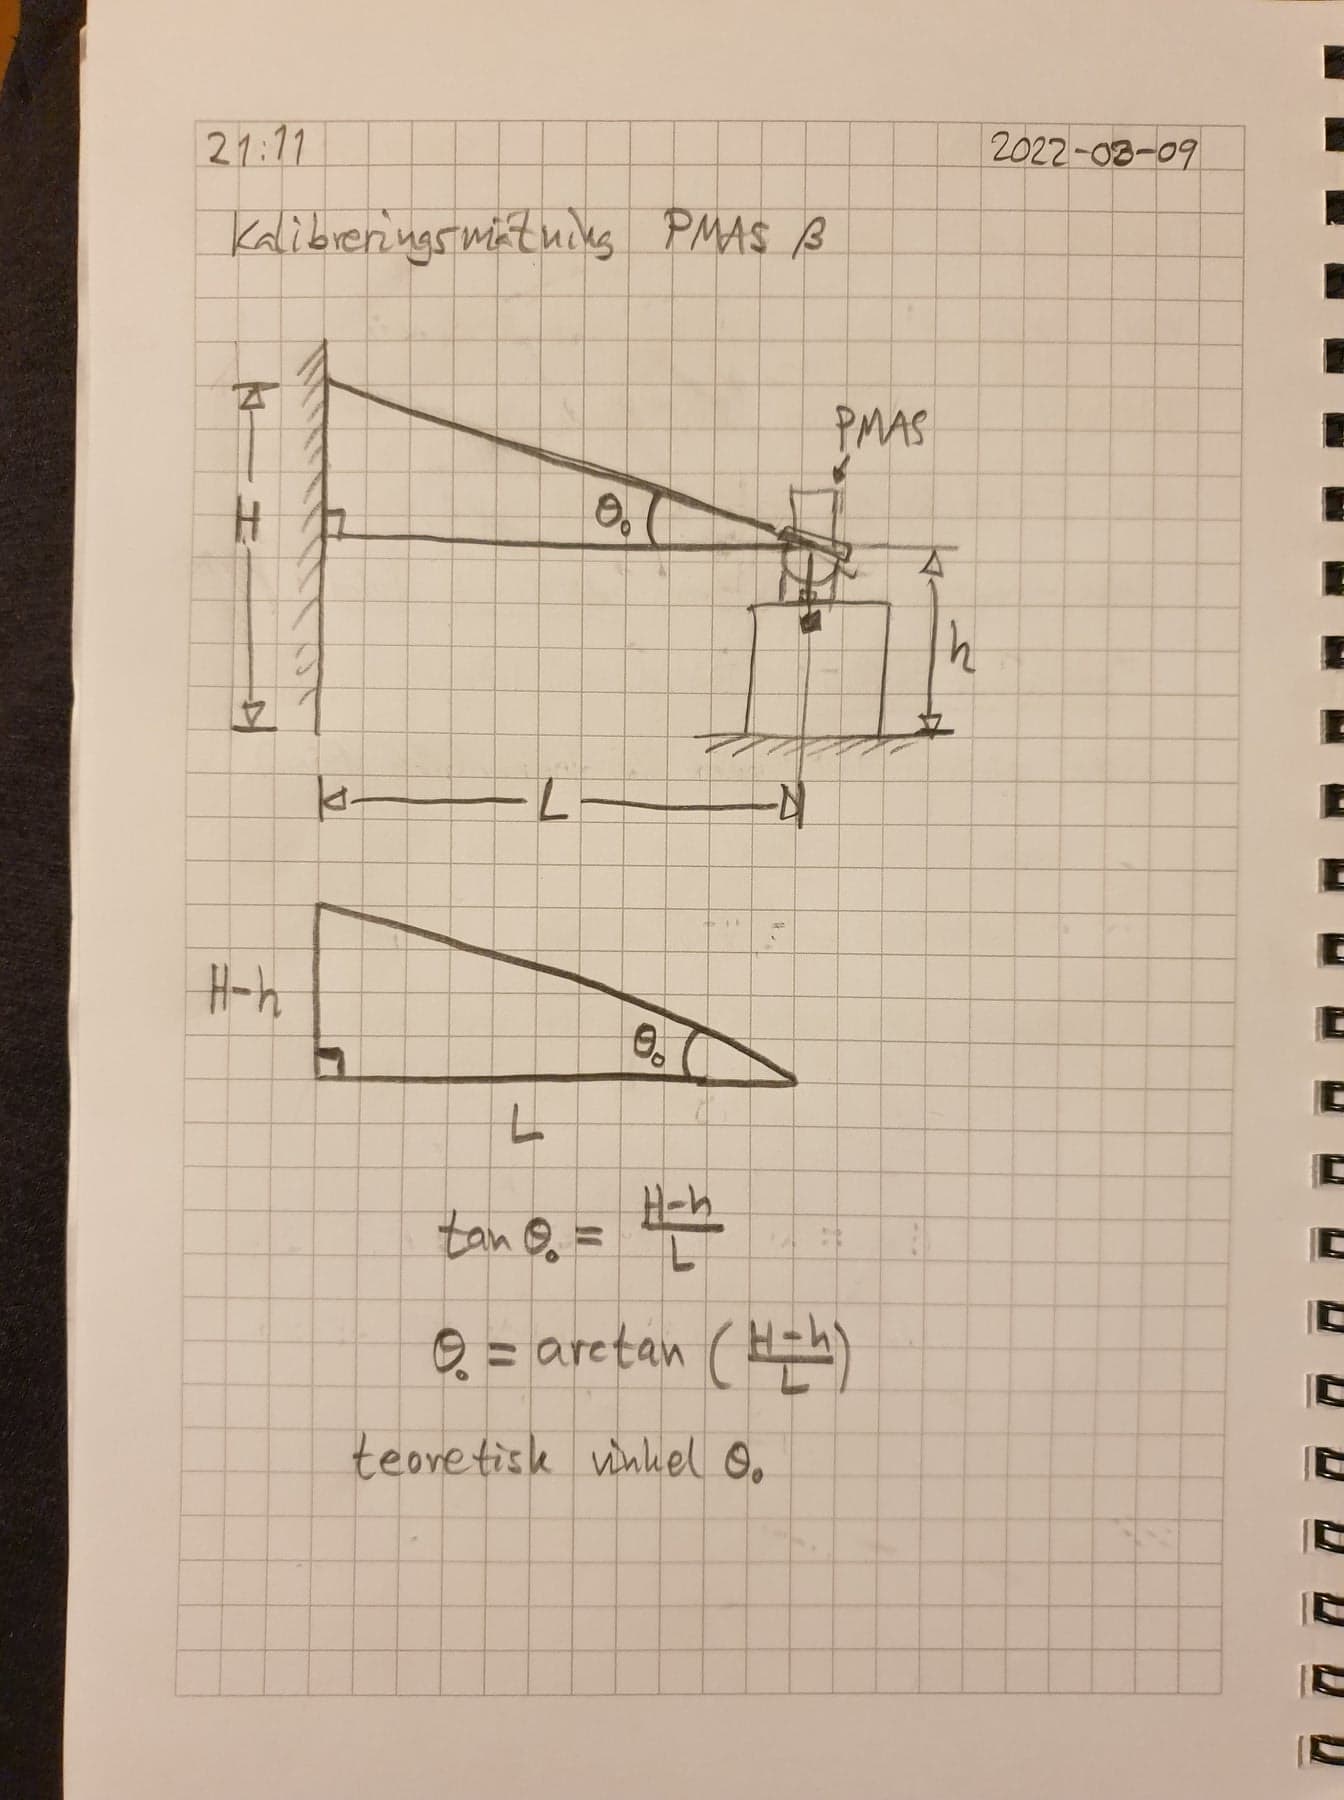 21:11 2022-03-09
Kalibreringsmätning PMAS β
PMAS
H
θ₀
h
L
H-h
θ₀
L
tan θ₀ = (H-h)/L
θ₀ = arctan ((H-h)/L)
teoretisk vinkel θ₀